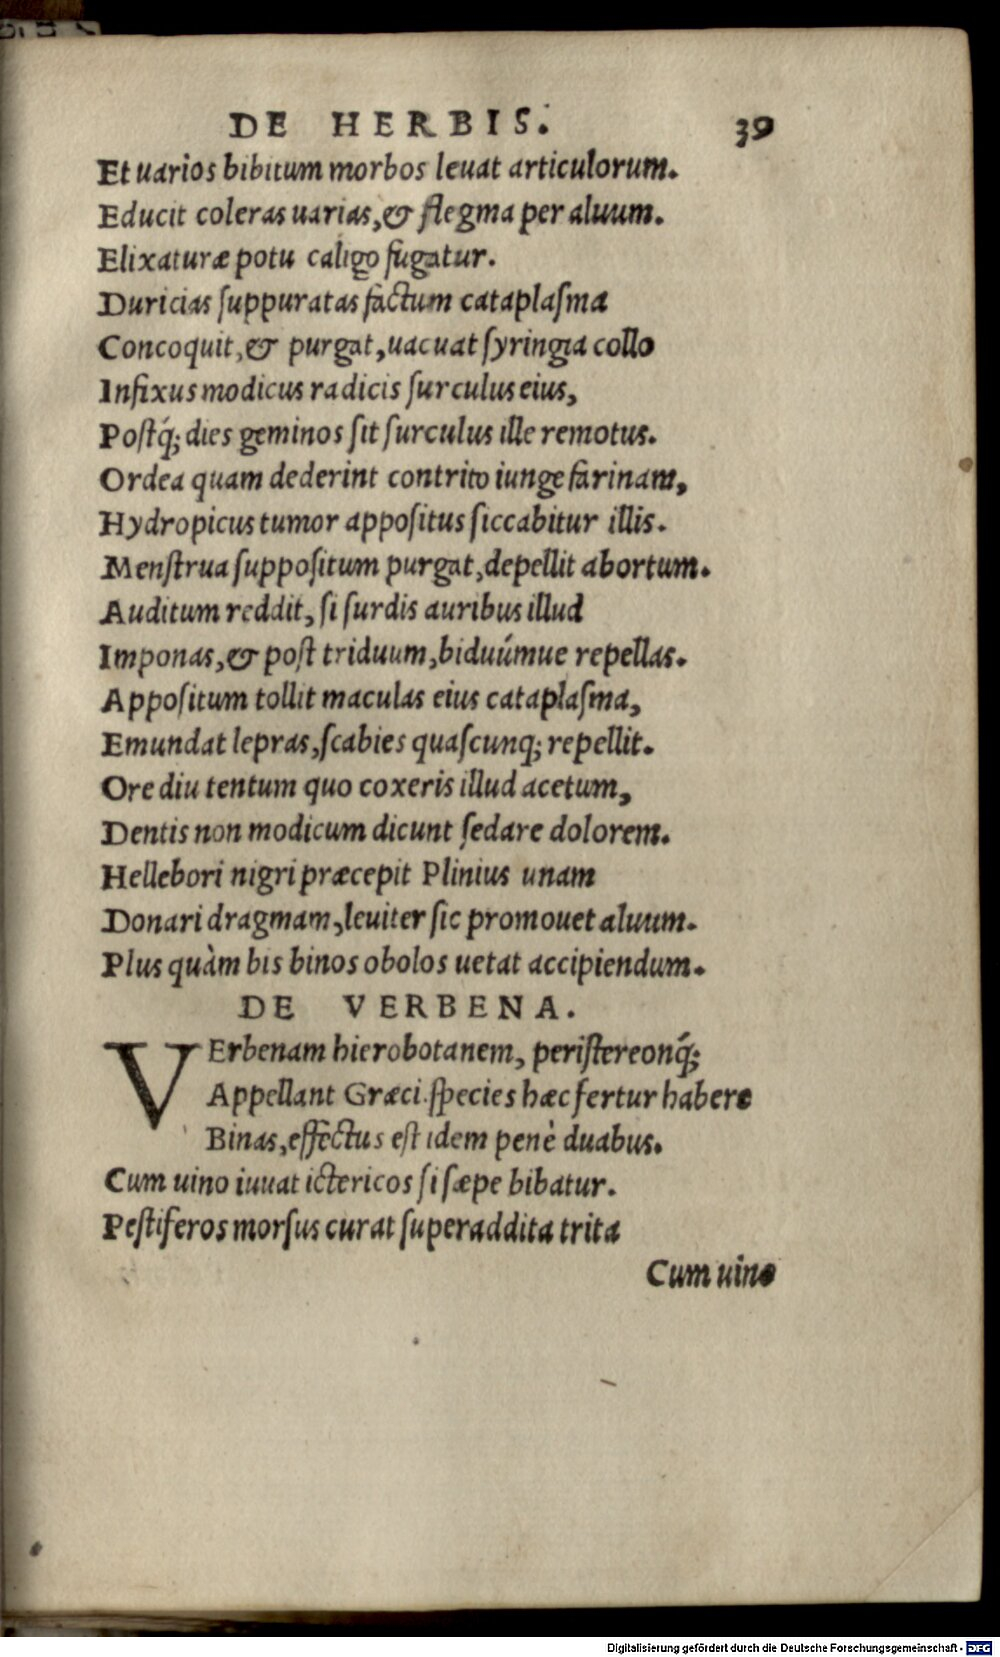 DE HERBIS. 39
Et uarios bibitum morbos leuat articulorum.
Educit coleras uarias, & flegma per aluum.
Elixaturæ potu caligo fugatur.
Duricias ſuppuratas factum cataplaſma
Concoquit, & purgat, uacuat ſyringia collo
Infixus modicus radicis ſurculus eius,
Poſtq́; dies geminos ſit ſurculus ille remotus.
Ordea quam dederint contrito iunge farinam,
Hydropicus tumor appoſitus ſiccabitur illis.
Menſtrua ſuppoſitum purgat, depellit abortum.
Auditum reddit, ſi ſurdis auribus illud
Imponas, & poſt triduum, biduúmue repellas.
Appoſitum tollit maculas eius cataplaſma,
Emundat lepras, ſcabies quaſcunq; repellit.
Ore diu tentum quo coxeris illud acetum,
Dentis non modicum dicunt ſedare dolorem.
Hellebori nigri præcepit Plinius unam
Donari dragmam, leuiter ſic promouet aluum.
Plus quàm bis binos obolos uetat accipiendum.
DE VERBENA.
VErbenam hierobotanem, periſtereonq́;
Appellant Græci. ſpecies hæc fertur habere
Binas, effectus eſt idem penè duabus.
Cum uino iuuat ictericos ſi ſæpe bibatur.
Peſtiferos morſus curat ſuperaddita trita
Cum uino
Digitalisierung gefördert durch die Deutsche Forschungsgemeinschaft - DFG